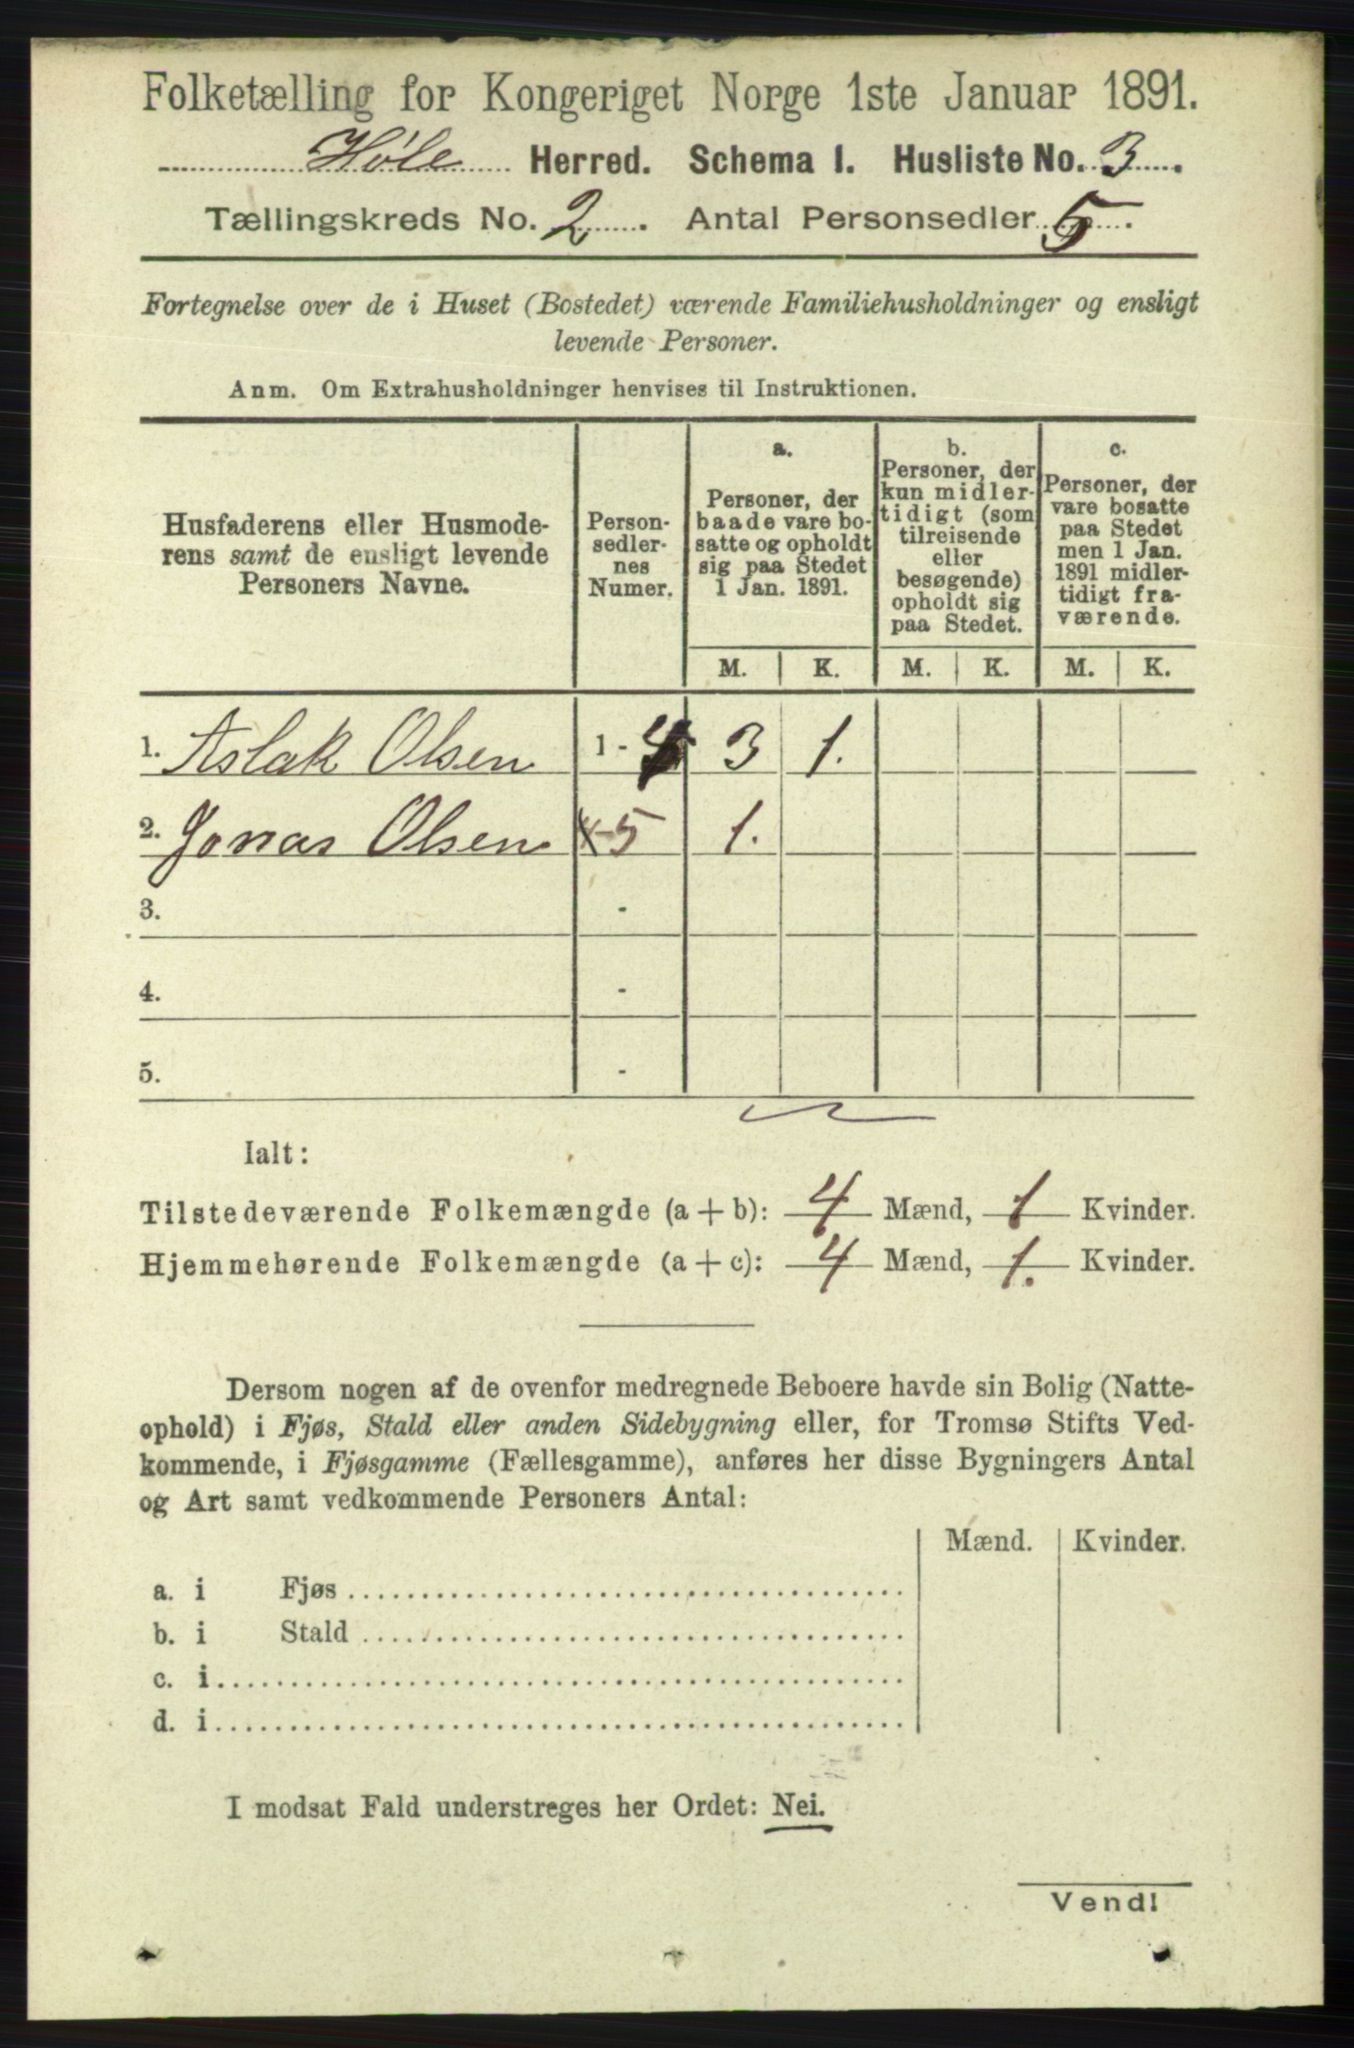 Folketælling for Kongeriget Norge 1ste Januar 1891.
Høle Herred. Schema I. Husliste No. 3.
Tællingskreds No. 2. Antal Personsedler 5.
Fortegnelse over de i Huset (Bostedet) værende Familiehusholdninger og ensligt
levende Personer.
Anm. Om Extrahusholdninger henvises til Instruktionen.
Husfaderens eller Husmode-
rens samt de ensligt levende
Personers Navne.
Person-
sedler-
nes
Numer.
a.
Personer, der
baade vare bo-
satte og opholdt
sig paa Stedet
1 Jan. 1891.
b.
Personer, der
kun midler-
tidigt (som
tilreisende
eller
besøgende)
opholdt sig
paa Stedet.
c.
Personer, der
vare bosatte
paa Stedet
men 1 Jan.
1891 midler-
tidigt fra-
værende.
M. K. M. K. M. K.
1. Aslak Olsen 1 - 4 3 1.
2. Jonas Olsen -5 1.
3. -
4. -
5. -
Ialt:
Tilstedeværende Folkemængde (a + b): 4 Mænd, 1 Kvinder.
Hjemmehørende Folkemængde (a + c): 4 Mænd, 1. Kvinder.
Dersom nogen af de ovenfor medregnede Beboere havde sin Bolig (Natte-
ophold) i Fjøs, Stald eller anden Sidebygning eller, for Tromsø Stifts Ved-
kommende, i Fjøsgamme (Fællesgamme), anføres her disse Bygningers Antal
og Art samt vedkommende Personers Antal:
Mænd. Kvinder.
a. i Fjøs
b. i Stald
c. i
d. i
I modsat Fald understreges her Ordet: Nei.
Vend!